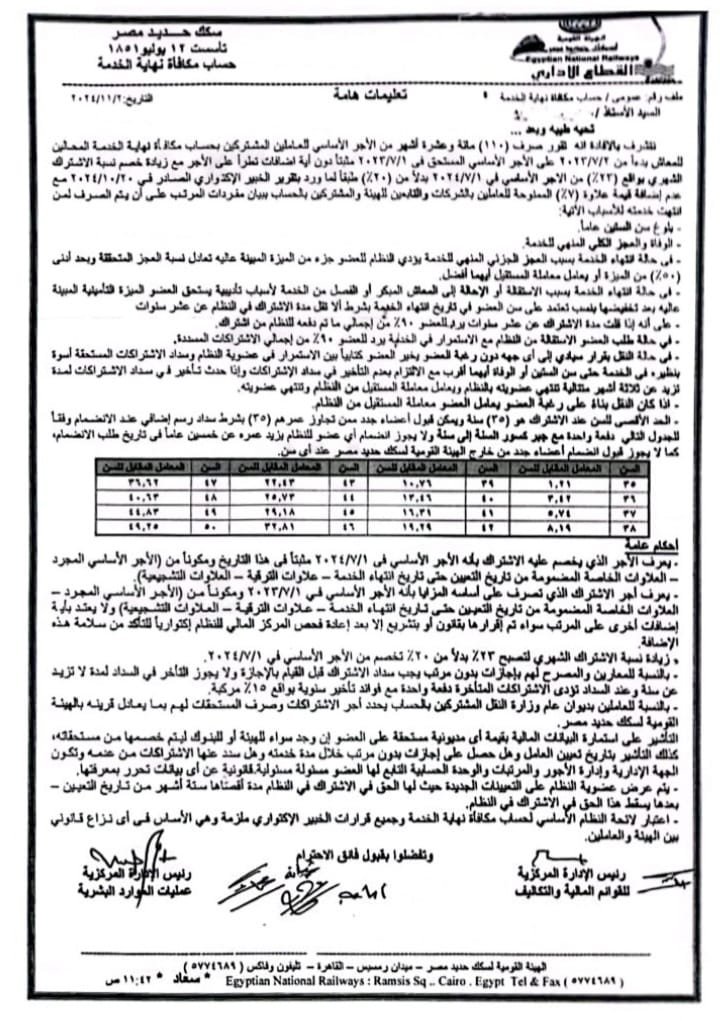 سكك حديد مصر
تأسست ١٢ يوليو ١٨٥١
حساب مكافأة نهاية الخدمة
الهيئة القومية
لسكك حديد مصر
Egyptian National Railways
القطاع الإداري
ملف رقم: عمومى / حساب مكافأة نهاية الخدمة
تعليمات هامة
التاريخ: ٢٠٢٤/١١/٢
السيد الأستاذ /
تحيه طيبه وبعد ...
نتشرف بالافادة انه تقرر صرف (١١٠) مائة وعشرة أشهر من الأجر الأساسي للعاملين المشتركين بحساب مكافأة نهاية الخدمة المحالين
للمعاش بدءاً من ٢٠٢٣/٧/٢ على الأجر الأساسي المستحق فى ٢٠٢٣/٧/١ مثبتاً دون أية اضافات تطرأ على الأجر مع زيادة خصم نسبة الاشتراك
الشهري بواقع (٢٣%) من الاجر الأساسي في ٢٠٢٤/٧/١ بدلاً من (٢٠%) طبقاً لما ورد بتقرير الخبير الإكتواري الصادر فى ٢٠٢٤/١٠/٢٠ مع
عدم إضافة قيمة علاوة (٧%) الممنوحة للعاملين بالشركات والتابعين للهيئة والمشتركين بالحساب ببيان مفردات المرتب على أن يتم الصرف لمن
انتهت خدمته للأسباب الآتية:
- بلوغ سن الستين عاماً.
- الوفاة والعجز الكلي المنهي للخدمة.
- فى حالة انتهاء الخدمة بسبب العجز الجزئي المنهي للخدمة يؤدي النظام للعضو جزء من الميزة المبينة عاليه تعادل نسبة العجز المتحققة وبحد أدنى
(٥٠%) من الميزة أو يعامل معاملة المستقيل أيهما أفضل.
- فى حالة انتهاء الخدمة بسبب الاستقالة أو الإحالة إلى المعاش المبكر أو الفصل من الخدمة لأسباب تأديبية يستحق العضو الميزة التأمينية المبينة
عاليه بعد تخفيضها بنسب تعتمد على سن العضو في تاريخ انتهاء الخدمة بشرط ألا تقل مدة الاشتراك في النظام عن عشر سنوات
- على أنه إذا قلت مدة الاشتراك عن عشر سنوات يرد للعضو ٩٠% من إجمالي ما تم دفعه للنظام من اشتراك.
- في حالة طلب العضو الاستقالة من النظام مع الاستمرار في الخدمة يرد للعضو ٩٠% من إجمالي الاشتراكات المسددة.
- في حالة النقل بقرار سيادي إلى أى جهه دون رغبة العضو يخير العضو كتابياً بين الاستمرار فى عضوية النظام وسداد الاشتراكات المستحقة أسوة
بنظيره فى الخدمة حتى سن الستين أو الوفاة أيهما أقرب مع الالتزام بعدم التأخير في سداد الإشتراكات وإذا حدث تأخير في سداد الاشتراكات لمدة
تزيد عن ثلاثة أشهر متتالية تنتهي عضويته بالنظام ويعامل معاملة المستقيل من النظام وتنتهي عضويته.
- اذا كان النقل بناءً على رغبة العضو يعامل العضو معاملة المستقيل من النظام.
- الحد الأقصى للسن عند الاشتراك هو (٣٥) سنة ويمكن قبول أعضاء جدد ممن تجاوز عمرهم (٣٥) بشرط سداد رسم إضافي عند الانضمام وفقاً
للجدول التالي دفعة واحدة مع جبر كسور السنة إلى سنة ولا يجوز انضمام أي عضو للنظام يزيد عمره عن خمسين عاماً فى تاريخ طلب الانضمام،
كما لا يجوز قبول انضمام أعضاء جدد من خارج الهيئة القومية لسكك حديد مصر عند أى سن.
السن المعامل المقابل للسن السن المعامل المقابل للسن السن المعامل المقابل للسن السن المعامل المقابل للسن
٣٥ ١,٢١ ٣٩ ١٠,٧٦ ٤٣ ٢٢,٤٣ ٤٧ ٣٦,٦٢
٣٦ ٣,٤٢ ٤٠ ١٣,٤٦ ٤٤ ٢٥,٧٣ ٤٨ ٤٠,٦٣
٣٧ ٥,٧٤ ٤١ ١٦,٣١ ٤٥ ٢٩,١٨ ٤٩ ٤٤,٨٣
٣٨ ٨,١٩ ٤٢ ١٩,٢٩ ٤٦ ٣٢,٨١ ٥٠ ٤٩,٢٥
أحكام عامة
- يعرف الأجر الذي يخصم عليه الاشتراك بأنه الأجر الأساسي فى ٢٠٢٤/٧/١ مثبتاً فى هذا التاريخ ومكوناً من (الأجر الأساسي المجرد
– العلاوات الخاصة المضمومة من تاريخ التعيين حتى تاريخ انتهاء الخدمة – علاوات الترقية – العلاوات التشجيعية).
- يعرف أجر الاشتراك الذي تصرف على أساسه المزايا بأنه الأجر الأساسي في ٢٠٢٣/٧/١ ومكوناً من (الأجر الأساسي المجرد –
العلاوات الخاصة المضمومة من تاريخ التعيين حتى تاريخ انتهاء الخدمة – علاوات الترقية – العلاوات التشجيعية) ولا يعتد بأية
إضافات أخرى على المرتب سواء تم إقرارها بقانون أو بتشريع إلا بعد إعادة فحص المركز المالي للنظام إكتوارياً للتأكد من سلامة هذه
الإضافة.
- زيادة نسبة الاشتراك الشهري لتصبح ٢٣% بدلاً من ٢٠% تخصم من الأجر الأساسي في ٢٠٢٤/٧/١.
- بالنسبة للمعارين والمصرح لهم بإجازات بدون مرتب يجب سداد الاشتراك قبل القيام بالإجازة ولا يجوز التأخر في السداد لمدة لا تزيد
عن سنة وعند السداد تؤدى الاشتراكات المتأخرة دفعة واحدة مع فوائد تأخير سنوية بواقع ١٥% مركبة.
- بالنسبة للعاملين بديوان عام وزارة النقل المشتركين بالحساب يحدد أجر الاشتراكات وصرف المستحقات لهم بما يعادل قرينه بالهيئة
القومية لسكك حديد مصر.
التأشير على استمارة البيانات المالية بقيمة أى مديونية مستحقة على العضو إن وجد سواء للهيئة أو للبنوك ليتم خصمها من مستحقاته،
كذلك التأشير بتاريخ تعيين العامل وهل حصل على إجازات بدون مرتب خلال مدة خدمته وهل سدد عنها الاشتراكات من عدمه وتكون
الجهة الإدارية وإدارة الأجور والمرتبات والوحدة الحسابية التابع لها العضو مسئولة مسئولية قانونية عن أى بيانات تحرر بمعرفتها.
- يتم عرض عضوية النظام على التعيينات الجديدة حيث لها الحق في الاشتراك في النظام مدة أقصاها ستة أشهر من تاريخ التعيين –
بعدها يسقط هذا الحق في الاشتراك في النظام.
- اعتبار لائحة النظام الأساسي لحساب مكافأة نهاية الخدمة وجميع قرارات الخبير الإكتواري ملزمة وهي الأساس فى أى نزاع قانوني
بين الهيئة والعاملين.
وتفضلوا بقبول فائق الاحترام
رئيس الإدارة المركزية
للقوائم المالية والتكاليف
رئيس الإدارة المركزية
عمليات الموارد البشرية
الهيئة القومية لسكك حديد مصر – ميدان رمسيس – القاهرة – تليفون وفاكس (٥٧٧٤٦٨٩)
Egyptian National Railways : Ramsis Sq .. Cairo . Egypt Tel & Fax (٥٧٧٤٦٨٩)
* سعاد * ١١:٤٢ ص